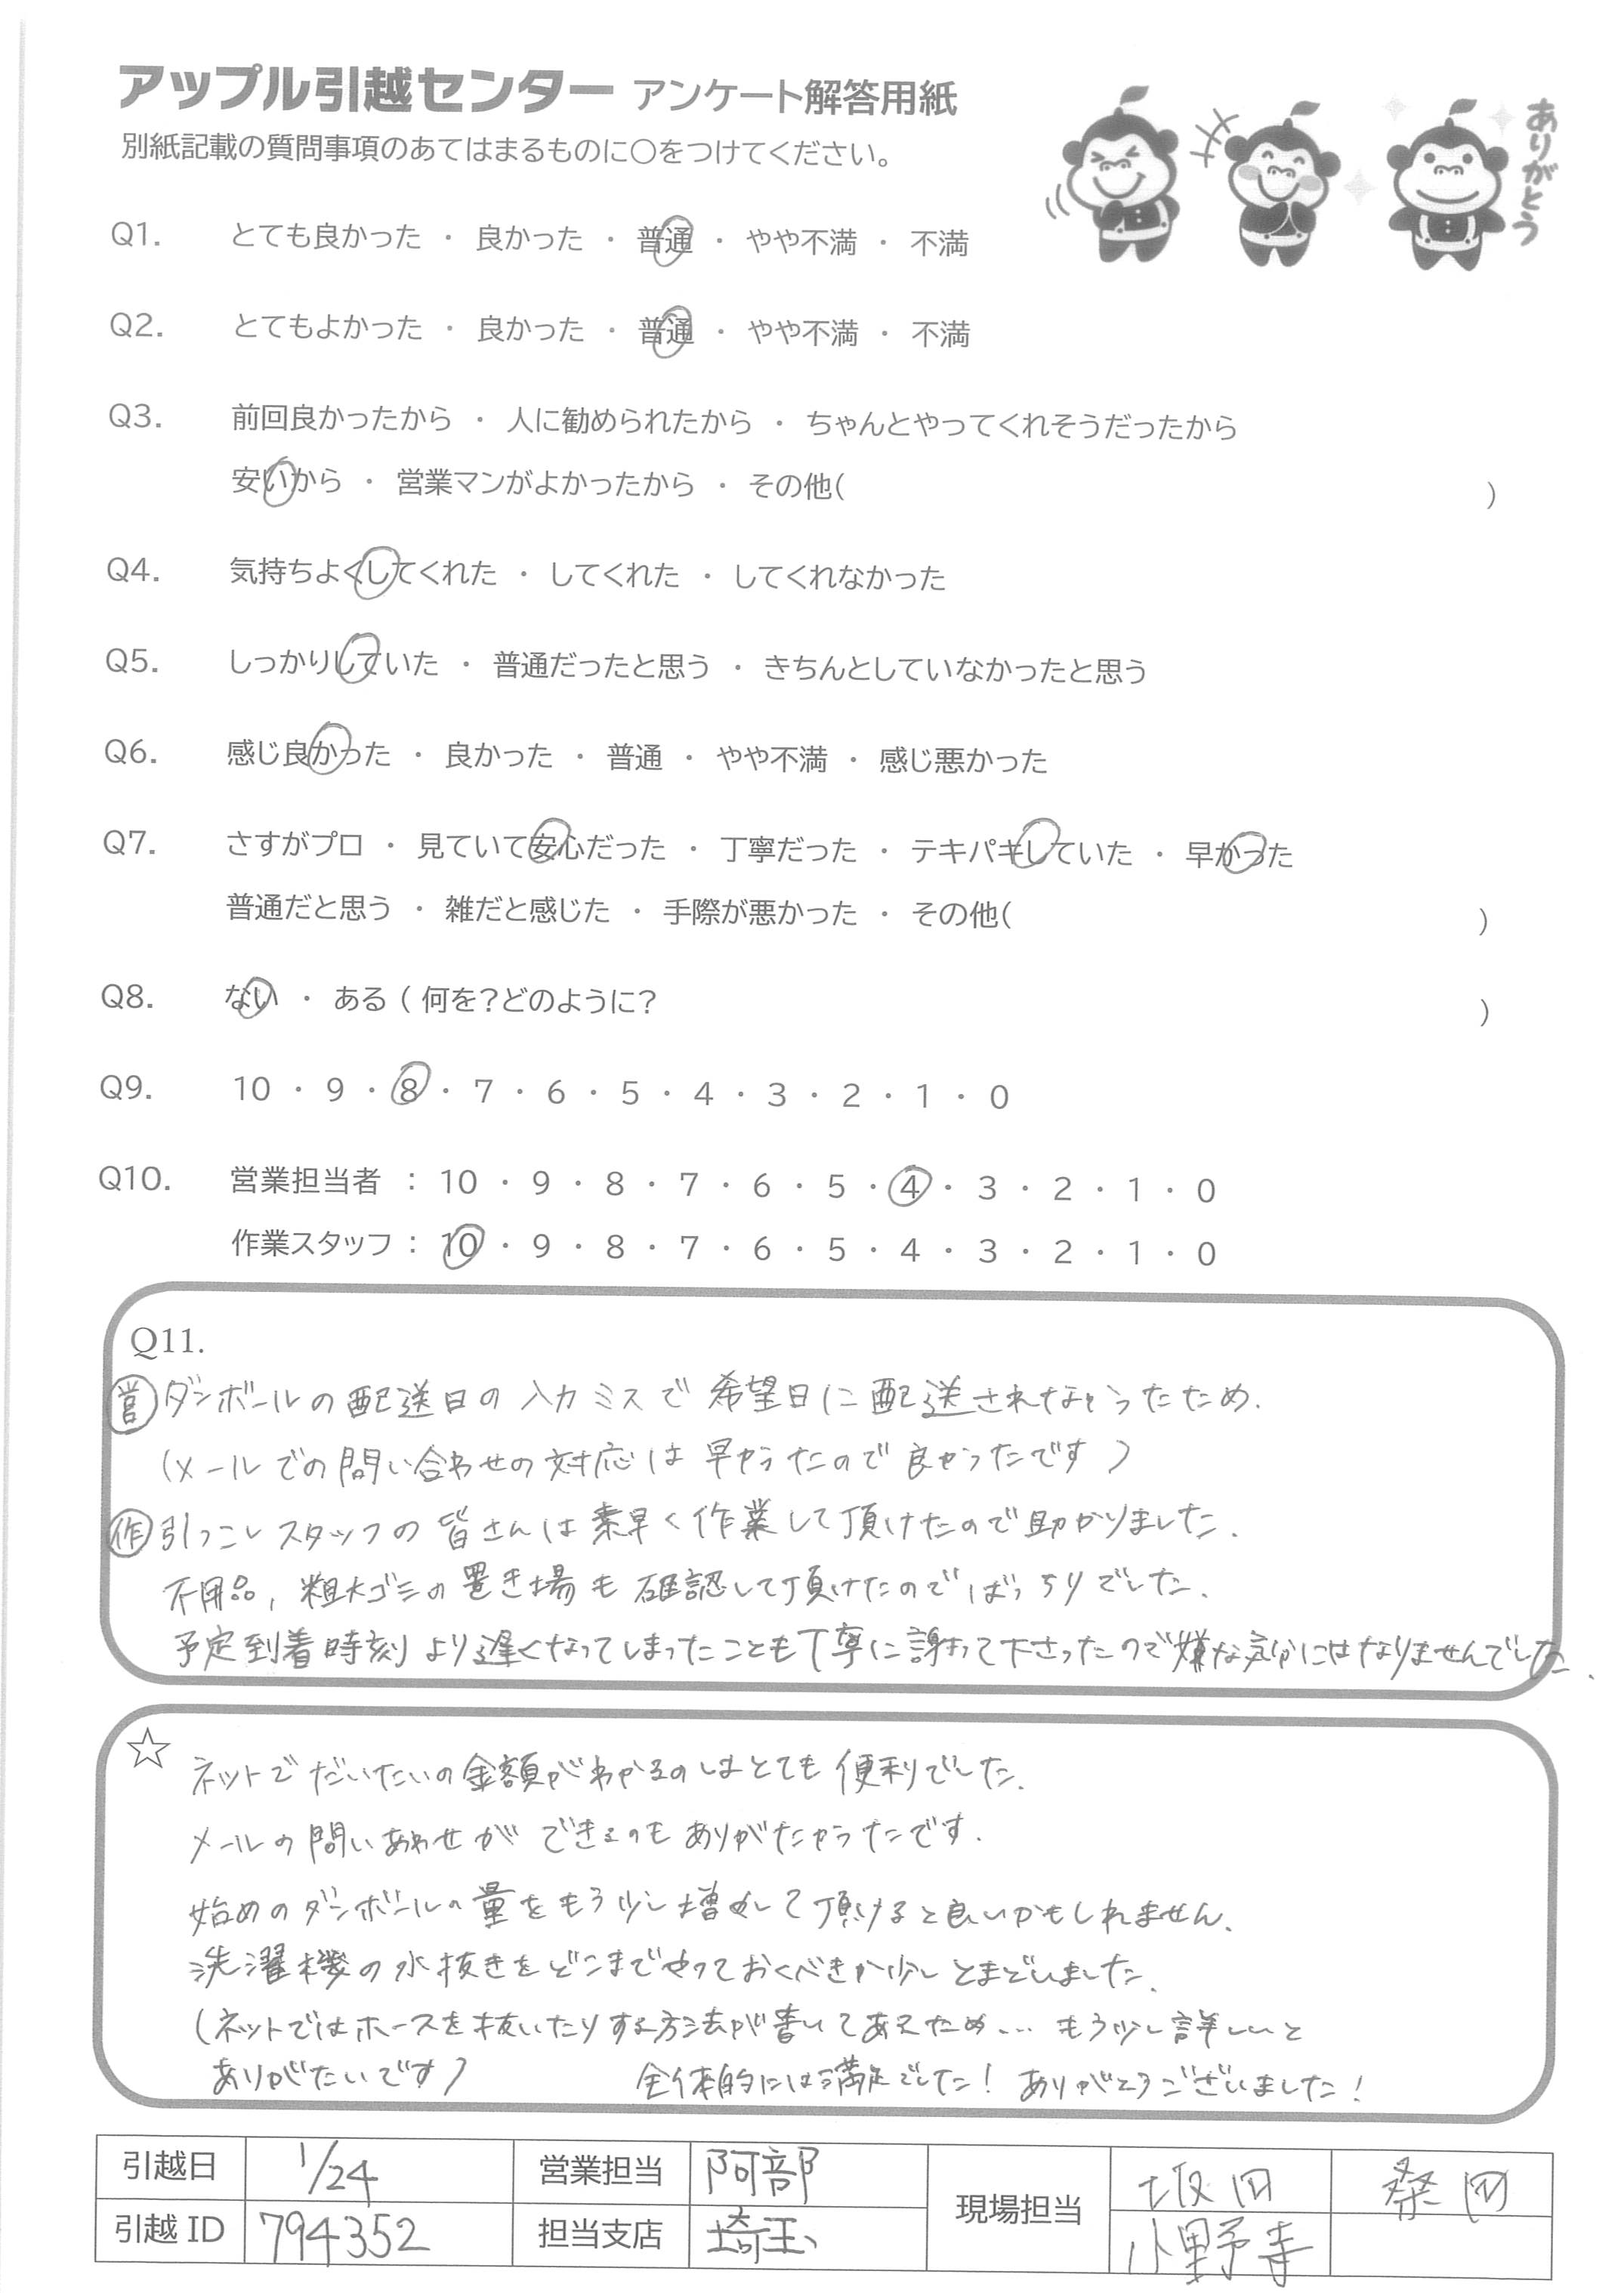 アップル引越センター アンケート解答用紙
別紙記載の質問事項のあてはまるものに○をつけてください。
ありがとう
Q1. とても良かった ・ 良かった ・ 普通 ・ やや不満 ・ 不満
Q2. とてもよかった ・ 良かった ・ 普通 ・ やや不満 ・ 不満
Q3. 前回良かったから ・ 人に勧められたから ・ ちゃんとやってくれそうだったから
安いから ・ 営業マンがよかったから ・ その他( )
Q4. 気持ちよくしてくれた ・ してくれた ・ してくれなかった
Q5. しっかりしていた ・ 普通だったと思う ・ きちんとしていなかったと思う
Q6. 感じ良かった ・ 良かった ・ 普通 ・ やや不満 ・ 感じ悪かった
Q7. さすがプロ ・ 見ていて安心だった ・ 丁寧だった ・ テキパキしていた ・ 早かった
普通だと思う ・ 雑だと感じた ・ 手際が悪かった ・ その他( )
Q8. ない ・ ある ( 何を?どのように? )
Q9. 10 ・ 9 ・ 8 ・ 7 ・ 6 ・ 5 ・ 4 ・ 3 ・ 2 ・ 1 ・ 0
Q10. 営業担当者 : 10 ・ 9 ・ 8 ・ 7 ・ 6 ・ 5 ・ 4 ・ 3 ・ 2 ・ 1 ・ 0
作業スタッフ : 10 ・ 9 ・ 8 ・ 7 ・ 6 ・ 5 ・ 4 ・ 3 ・ 2 ・ 1 ・ 0
Q11.
営 ダンボールの配送日の入力ミスで希望日に配送されなかったため.
(メールでの問い合わせの対応は早かったので良かったです)
作 引っこしスタッフの皆さんは素早く作業して頂けたので助かりました.
不用品, 粗大ゴミの置き場も確認して頂けたのでばっちりでした.
予定到着時刻より遅くなってしまったことも丁寧に謝って下さったので嫌な気分にはなりませんでした.
☆ ネットでだいたいの金額がわかるのはとても便利でした.
メールの問いあわせができるのもありがたかったです.
始めのダンボールの量をもう少し増やして頂けると良いかもしれません.
洗濯機の水抜きをどこまでやっておくべきか少しとまどいました.
(ネットではホースを抜いたりする方法が書いてあるため... もう少し詳しいと
ありがたいです) 全体的には満足でした! ありがとうございました!
引越日 1/24 営業担当 阿部 現場担当 坂田 桑田
引越 ID 794352 担当支店 埼玉 小野寺